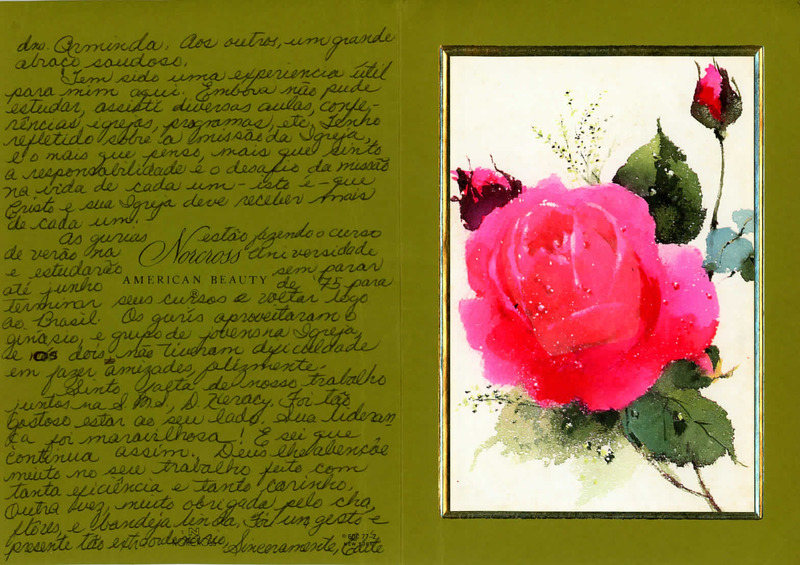 dna. Arminda. Aos outros, um grande
abraço saudoso.
Tem sido uma experiencia útil
para mim aqui. Embora não pude
estudar, assisti diversas aulas, confe-
rências, igrejas, programas, etc. Tenho
refletido sobre a missão da Igreja,
e o mais que penso, mais que sinto
a responsabilidade e o desafio da missão
na vida de cada um - isto é - que
Cristo e sua Igreja deve receber mais
de cada um.
As gurias estão fazendo o curso
de verão na Universidade
e estudarão sem parar
até junho de '75 para
terminar seus cursos e voltar logo
ao Brasil. Os guris aproveitaram o
ginásio, e grupo de jovens na Igreja,
e os dois não tiveram dificuldade
em fazer amizades, felizmente.
Sinto falta de nosso trabalho
juntos na S.M.I, D. Keracy. Foi tão
gostoso estar ao seu lado. Sua lideran
ça foi maravilhosa! E sei que
continua assim. Deus lhe abençõe
muito no seu trabalho feito com
tanta eficiência e tanto carinho.
Outra vez, muito obrigada pelo chá,
flores, e bandeja linda. Foi um gesto e
presente tão extraordinário, Sinceramente,
Norcross
AMERICAN BEAUTY